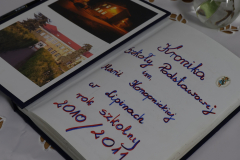 Kronika
Szkoły Podstawowej
im.
Marii Konopnickiej
w Lipinach
rok szkolny
2010/2011